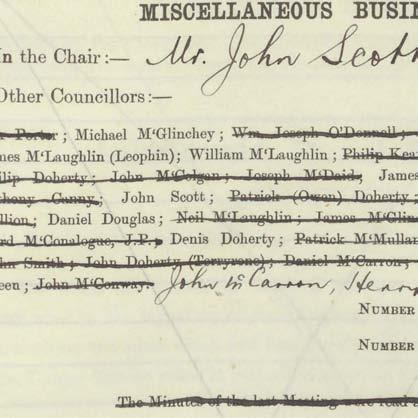 MISCELLANEOUS BUSI
In the Chair:— Mr. John Scott
Other Councillors:—
Porter; Michael M'Glinchey; Wm. Joseph O'Donnell;
mes M'Laughlin (Leophin); William M'Laughlin; Philip Kea
ilip Doherty; John M'Colgan; Joseph M'Daid; James
thony Gunny; John Scott; Patrick (Owen) Doherty;
llion; Daniel Douglas; Neil M'Laughlin; James M'Glin
ard M'Conalogue, J.P.; Denis Doherty; Patrick M'Mullan
hn Smith; John Doherty (Terryrone); Daniel M'Carron;
een; John M'Conway. John McCarron, Henry
NUMBER
NUMBER
The Minutes of the last Meeting were read